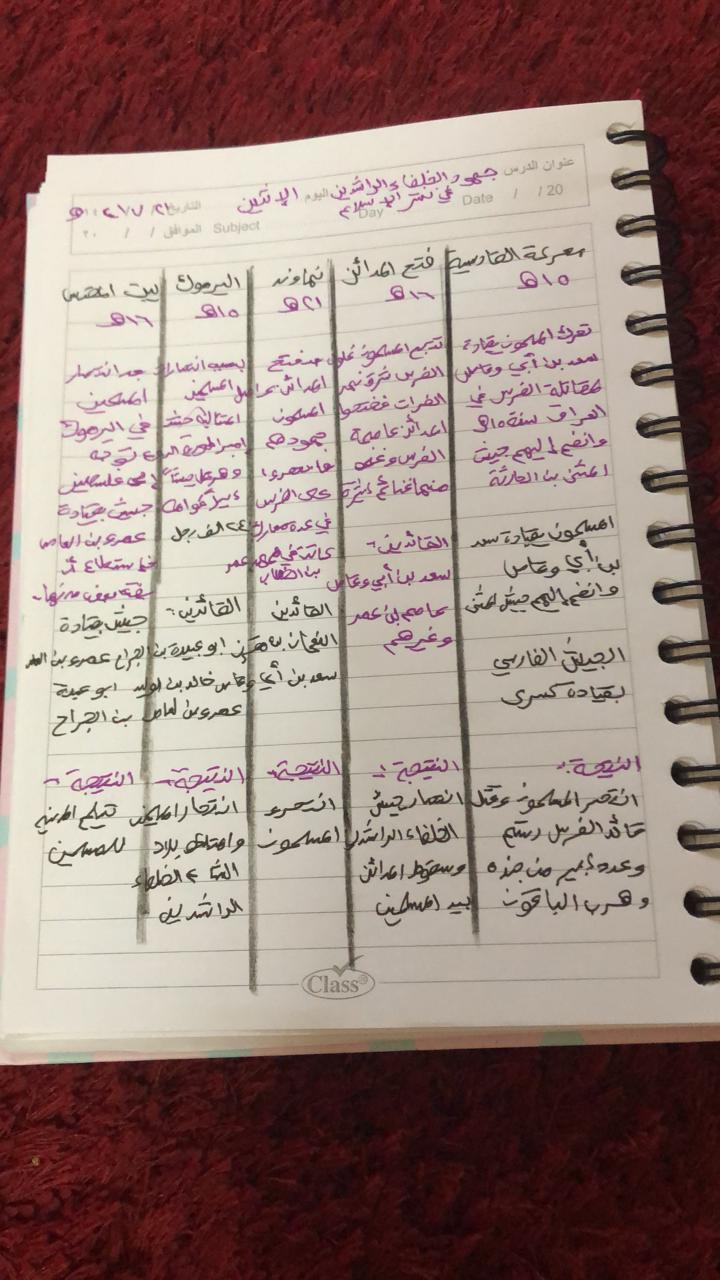 عنوان الدرس جهود الخلفاء الراشدين اليوم الإثنين التاريخ
في نشر الإسلام
Day Date / / 20
Subject الموافق / / ٢٠
معركة القادسية
١٥هـ
تحرك المسلمون بقيادة
سعد بن أبي وقاص
لمقاتلة الفرس في
العراق سنة ١٥هـ
وانضم إليهم جيش
المثنى بن الحارثة
المسلمون بقيادة سعد
بن أبي وقاص
وانضم إليهم جيش المثنى
الجيش الفارسي
بقيادة كسرى
النتيجة:
انتصر المسلمون وقتل
قائد الفرس رستم
وعدد كبير من جنده
وهرب الباقون
فتح المدائن
١٦هـ
تتبع المسلمون فلول
الفرس شرق نهر
الفرات ففتحوا
المدائن عاصمة
الفرس وغنموا
منها غنائم كثيرة
القائدين:-
سعد بن أبي وقاص
عاصم بن عمر
وغيرهم
النتيجة:-
انتصار جيش
الخلفاء الراشدين
وسقوط المدائن
بيد المسلمين
نهاوند
٢١هـ
بعد فتح
المدائن واصل
المسلمون
جهودهم
على الفرس
في عدة معارك
كانت في عهد عمر
بن الخطاب
القائدين
النعمان بن مقرن
سعد بن أبي وقاص
النتيجة:-
انتصر
المسلمون
اليرموك
١٥هـ
بسبب انتصارات
المسلمين
المتتالية حشد
امبراطور الروم
وهرقل جيشاً
٢٤ الف رجل
القائدين:-
ابو عبيدة بن الجراح
خالد بن الوليد
عمرو بن العاص
النتيجة:-
انتصار المسلمين
بلاد
الشام الخلفاء
الراشدين
بيت المقدس
١٦هـ
بعد انتصار
المسلمين
في اليرموك
توجه
إلى فلسطين
جيش بقيادة
عمرو بن العاص
فاستطاع أن
بعض مدنها.
جيش بقيادة
عمرو بن العاص
ابو عبيدة
بن الجراح
النتيجة:-
تسليم المدينة
للمسلمين
Class®